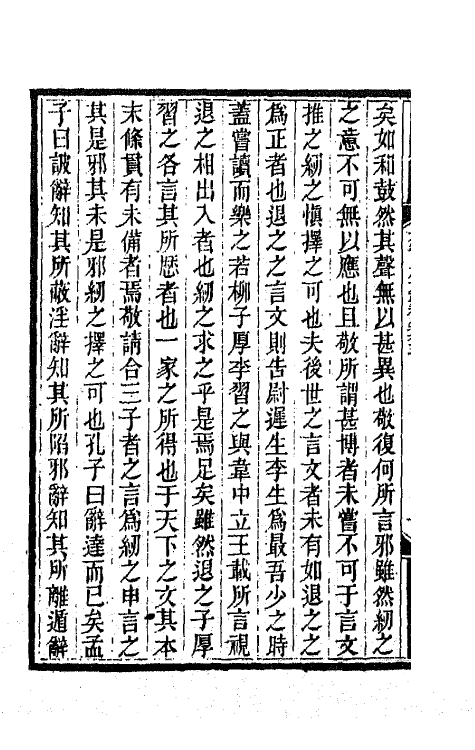 矣如和鼓然其聲無以甚異也敬復何所言邪雖然紉之
之意不可無以應也且敬所謂甚博者未嘗不可于言文
推之紉之慎擇之可也夫後世之言文者未有如退之之
爲正者也退之之言文則告尉遲生李生爲最吾少之時
蓋嘗讀而樂之若柳子厚李習之與韋中立王載所言視
退之相出入者也紉之求之乎是焉足矣雖然退之子厚
習之各言其所歷者也一家之所得也于天下之文其本
末條貫有未備者焉敬請合三子者之言爲紉之申言之
其是邪其未是邪紉之擇之可也孔子曰辭達而已矣孟
子曰詖辭知其所蔽淫辭知其所陷邪辭知其所離遁辭